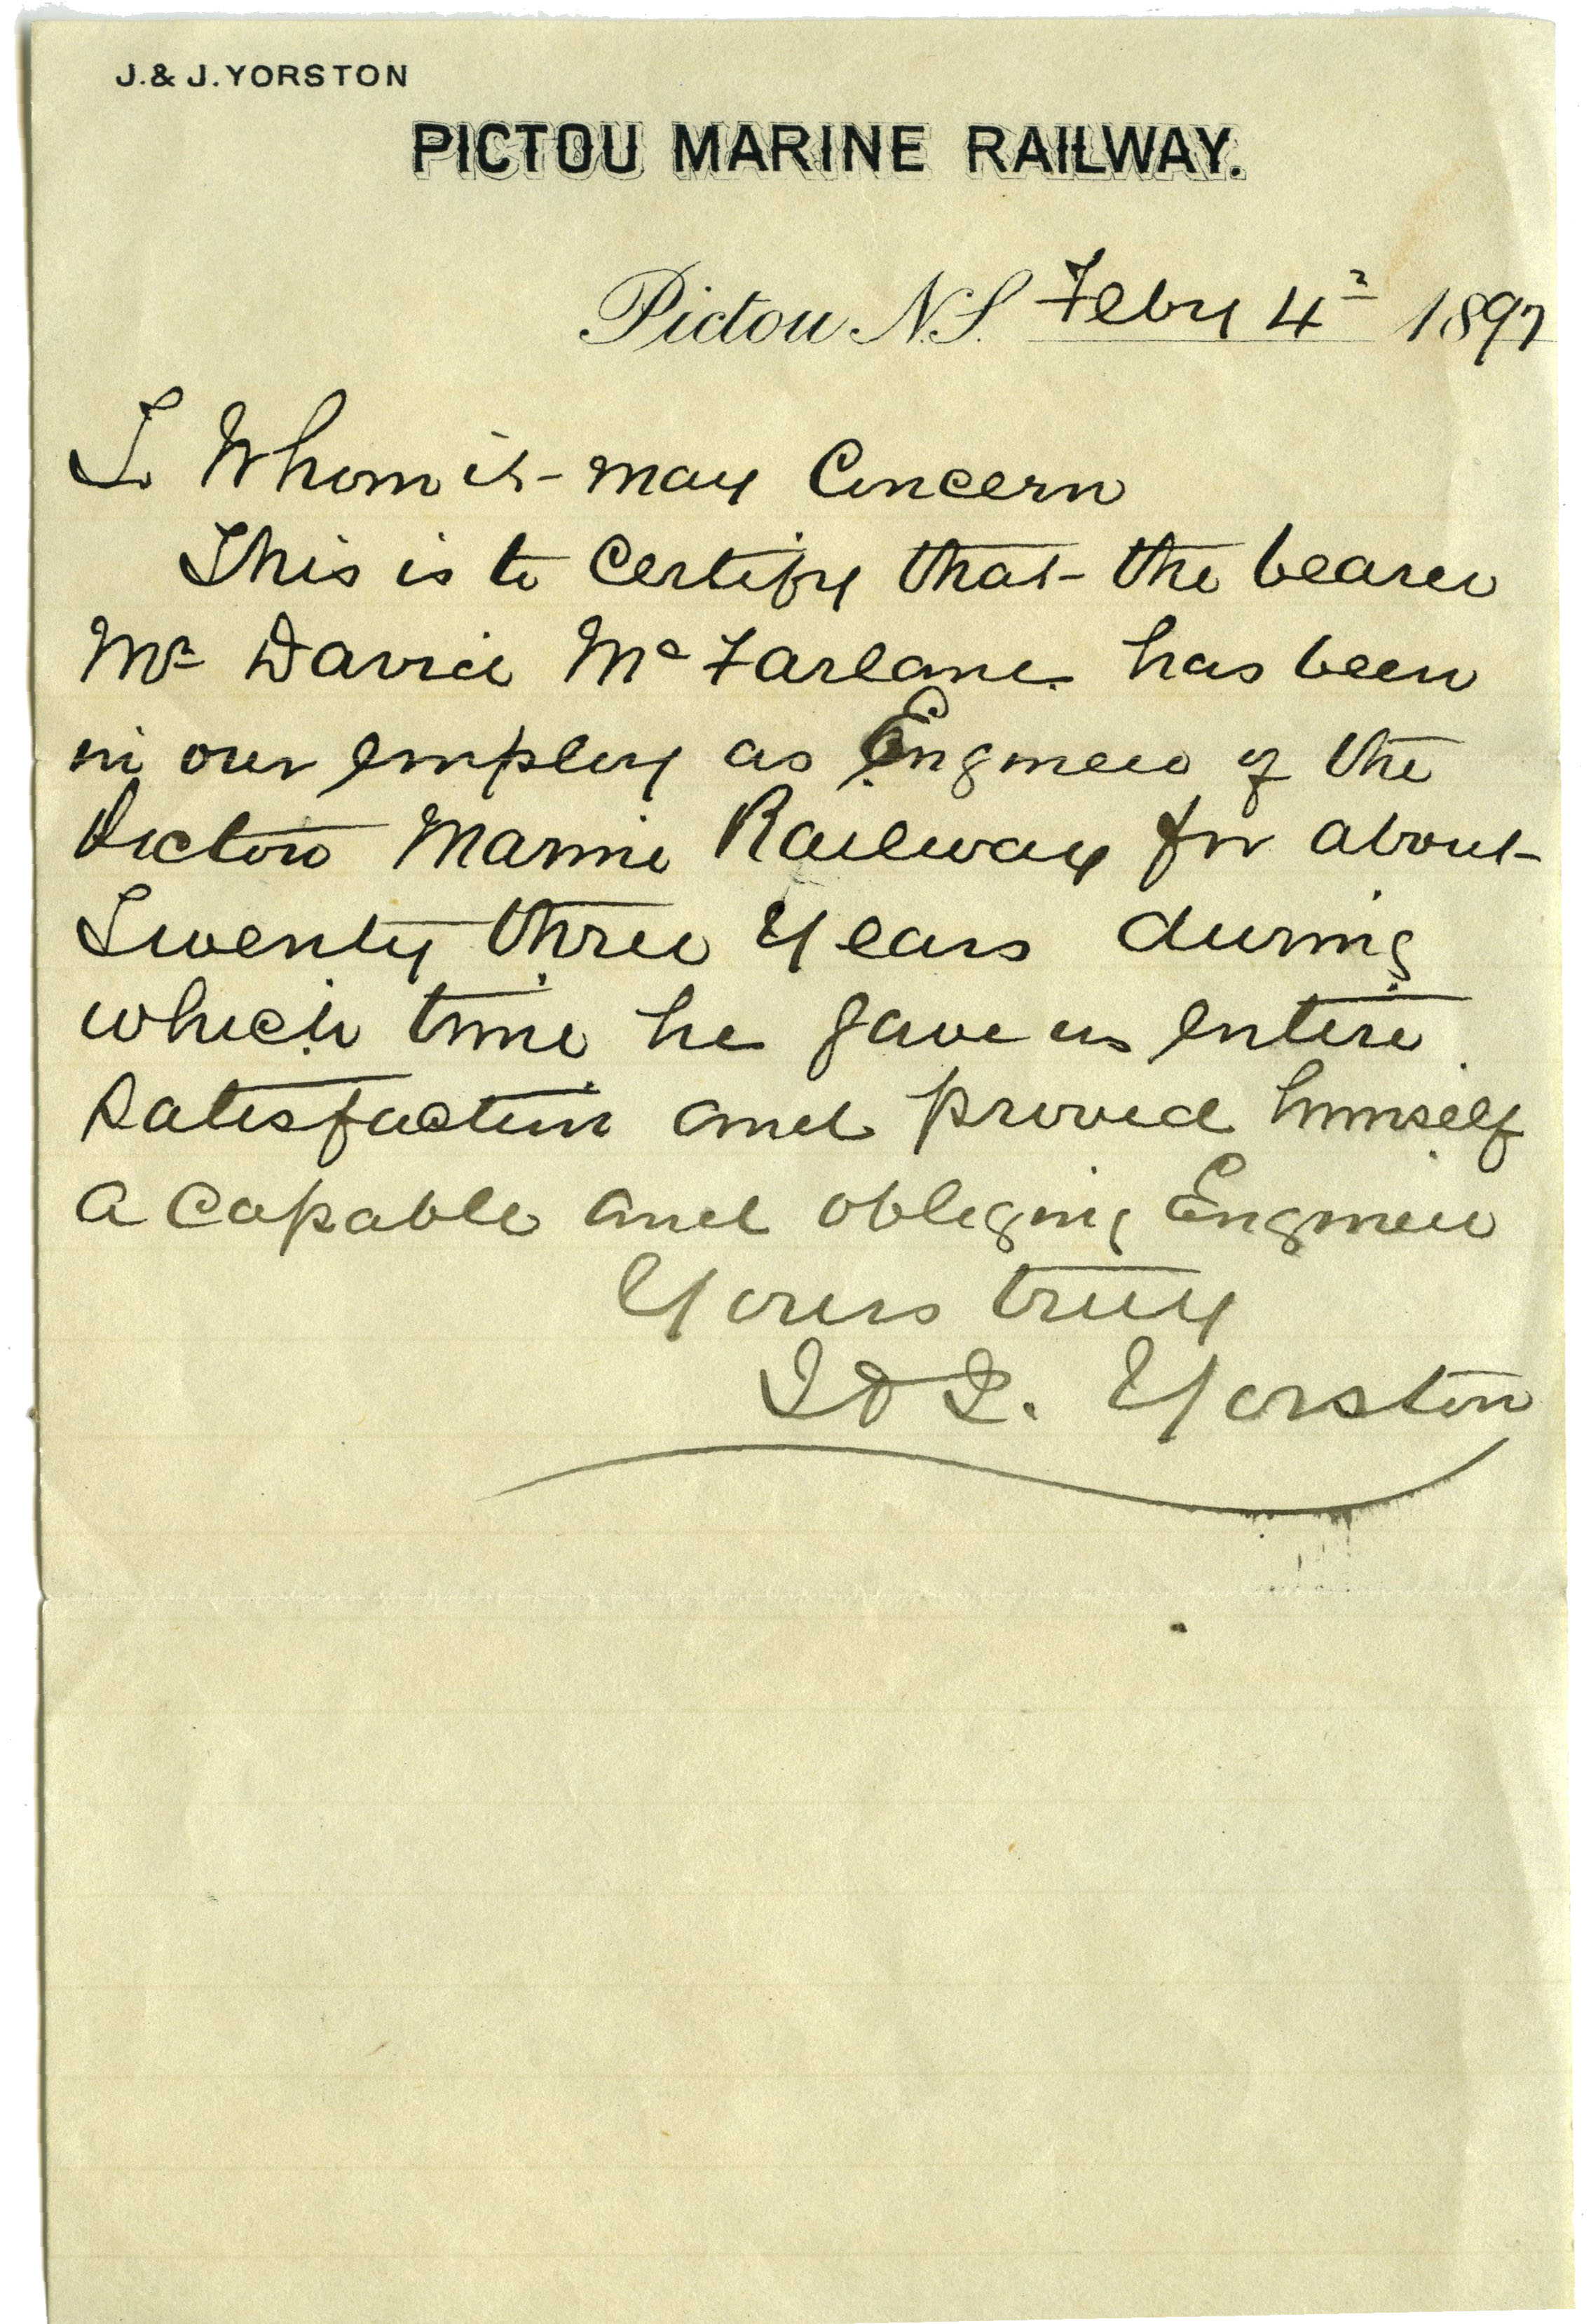 J. & J. YORSTON
PICTOU MARINE RAILWAY.
Pictou N.S. Feby 4th 1897
To Whom it may Concern
This is to Certify that the bearer
Mr David McFarlane has been
in our employ as Engineer of the
Pictou Marine Railway for about
Twenty three Years during
which time he gave us entire
satisfaction and proved himself
a capable and obliging Engineer
Yours truly
J & J. Yorston